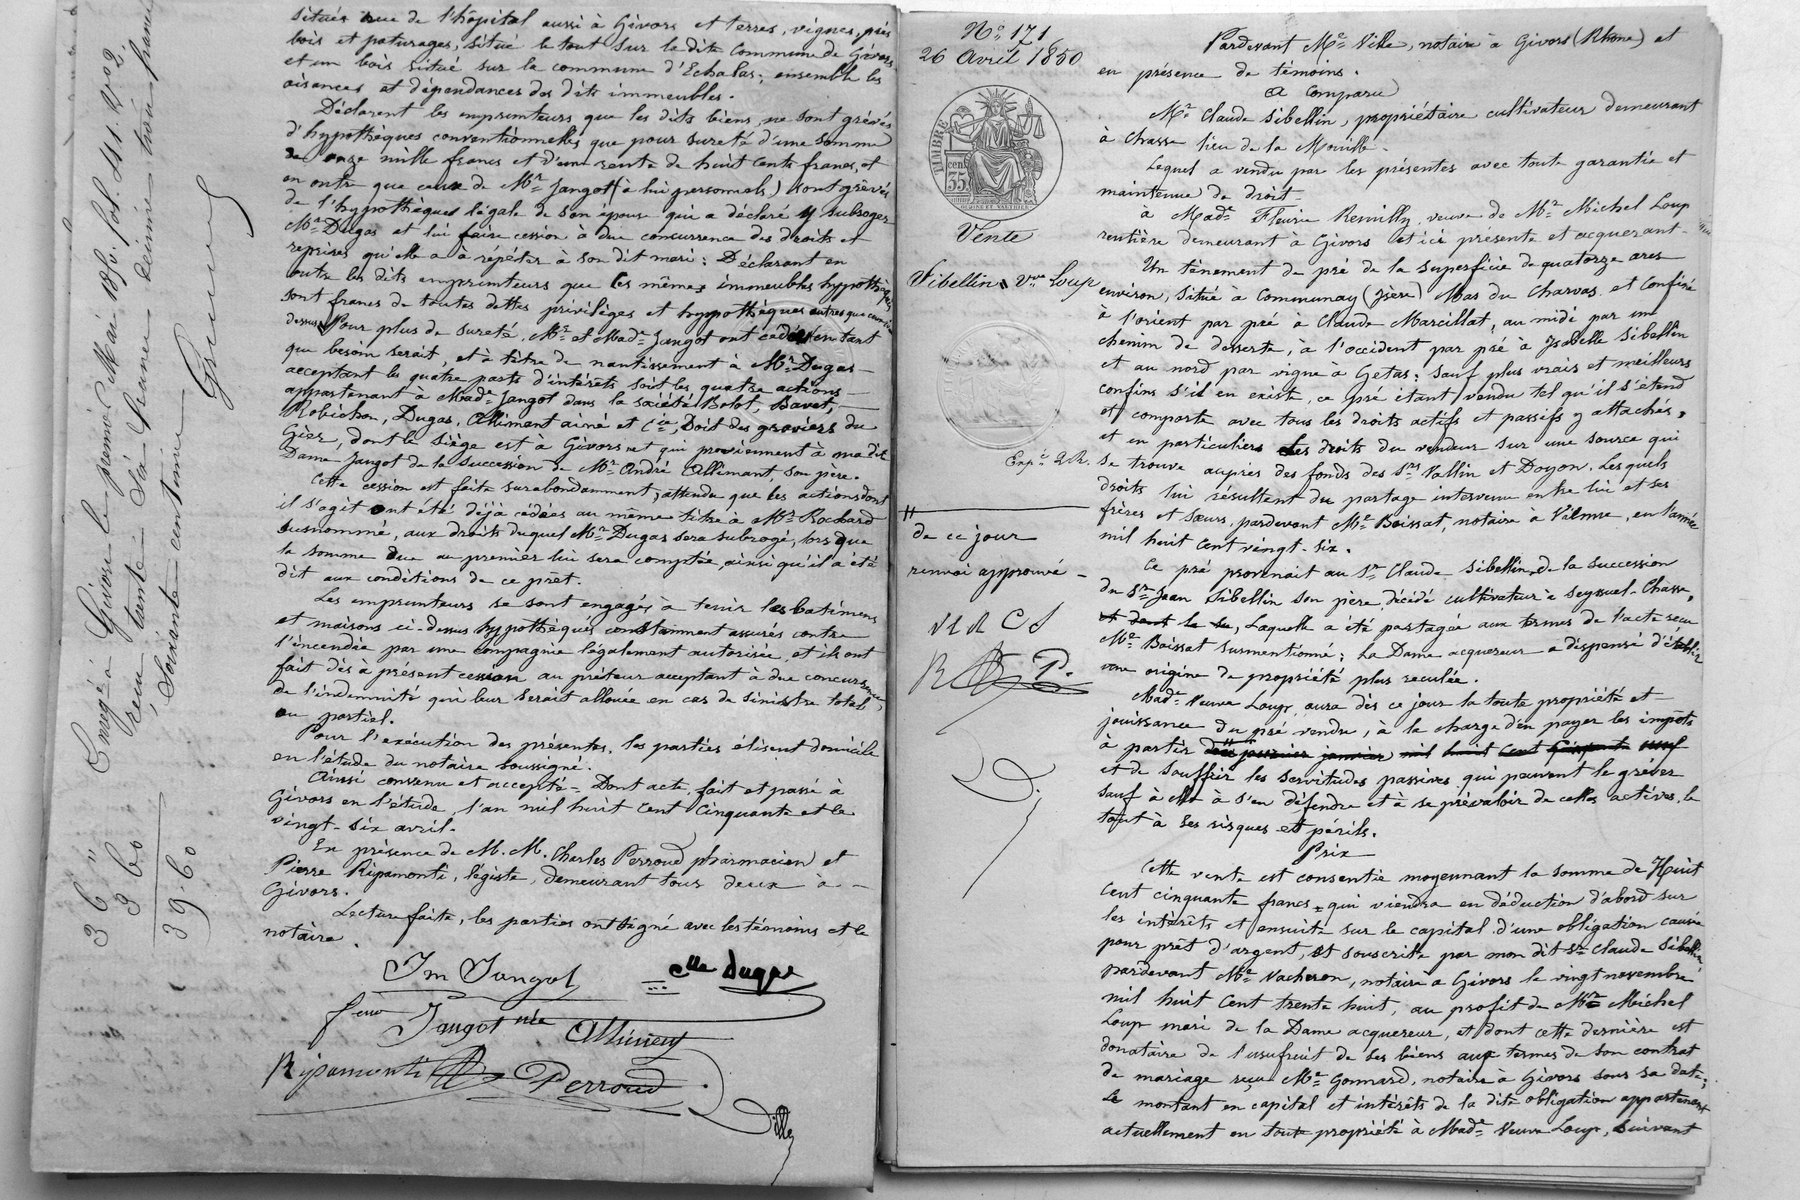 situés rue de l'hôpital aussi à Givors et terres, vignes, prés
bois et paturages, situé le tout sur la dite Commune de Givors
et un bois situé sur la commune d'Echalas; ensemble les
aisances et dépendances des dits immeubles.
Déclarent les emprunteurs que les dits biens, ne sont grévés
d'hypothèques conventionnelles que pour sureté d'une somme
de onze mille francs et d'une rente de huit cents francs, et
en outre que ceux de Mr Jangot (à lui personnels) sont grévés
de l'hypothèque légale de son épouse qui a déclaré y subroger
Mr Dugas et lui faire cession à due concurrence des droits et
reprises qu'elle a à répéter à son dit mari: Déclarant en
outre les dits emprunteurs que les mêmes immeubles hypothéqués
sont francs de toutes dettes privilèges et hypothèques autres que
dessus. Pour plus de sureté, Mr et Made Jangot ont cédé en tant
que besoin serait, et à titre de nantissement à Mr Dugas
acceptant les quatre parts d'intérêts soit les quatre actions
appartenant à Made Jangot dans la société Bolot, Bavet,
Robichon, Dugas, Allimant ainé et Cie, Doit des graviers du
Gier, dont le siège est à Givors et qui proviennent à ma dite
Dame Jangot de la succession de Mr André Allimant son père.
Cette cession est faite surabondamment, attendu que les actions dont
il s'agit ont été déjà cédées au même titre à Mr Rochard
susnommé, aux droits duquel Mr Dugas sera subrogé, lorsque
la somme due au premier lui sera comptée ainsi qu'il a été
dit aux conditions de ce prêt.
Les emprunteurs se sont engagés à tenir les batimens
et maisons ci-dessus hypothéqués constamment assurés contre
l'incendie par une compagnie légalement autorisée, et ils ont
fait dès à présent cession au prêteur acceptant à due concurrence
de l'indemnité qui leur serait allouée en cas de sinistre total
ou partiel.
Pour l'exécution des présentes, les parties élisent domicile
en l'étude du notaire soussigné.
Ainsi convenu et accepté - Dont acte, fait et passé à
Givors en l'étude, l'an mil huit cent cinquante et le
vingt-six avril.
En présence de M.M. Charles Perroud pharmacien et
Pierre Ripamonti, légiste, demeurant tous deux à
Givors.
Lecture faite, les parties ont signé avec les témoins et le
notaire.
Jm Jangot
Cllle Dugas
feme Jangot née Alliment
Ripamonti
Perroud
Ville
Enregé à Givors le premier Mai 1850. fol. 141. Vo C2.
Reçu trente six francs décime trois francs
soixante centimes
36 "
3 60
39.60
No 171
26 Avril 1850
TIMBRE
35 cent
Vente
Sibellin à Vve Loup
Expé 2 R.
de ce jour
renvoi approuvé
VLR C S
R P.
Pardevant Me Ville, notaire à Givors (Rhône) et
en présence de témoins.
A Comparu
Mr Claude Sibellin, propriétaire cultivateur demeurant
à Chasse lieu de la Mouille.
Lequel a vendu par les présentes avec toute garantie et
maintenue de droit
à Made Fleurie Remilly, veuve de Mr Michel Loup
rentière demeurant à Givors et ici présente et acquerant
Un tènement de pré de la superficie de quatorze ares
environ, situé à Communay (Isère) Mas du Charvas et confiné
à l'orient par pré à Claude Marcillat, au midi par un
chemin de desserte, à l'occident par pré à Isabelle Sibellin
et au nord par vigne à Getas; sauf plus vrais et meilleurs
confins s'il en existe, ce pré étant vendu tel qu'il s'étend
et comporte avec tous les droits actifs et passifs y attachés,
et en particuliers les droits du vendeur sur une source qui
se trouve auprès des fonds des Srs Vallin et Doyon. Lesquels
droits lui résultent du partage intervenu entre lui et ses
frères et sœurs, pardevant Me Boissat, notaire à Vienne, en l'année
mil huit cent vingt-six.
Ce pré provenait au Sr Claude Sibellin de la succession
du Sr Jean Sibellin son père, décédé cultivateur à Seyssuel-Chasse,
et dont la su, Laquelle a été partagée aux termes de l'acte reçu
Me Boissat susmentionné; La Dame acquereur a dispensé d'établir
une origine de propriété plus reculée.
Made Veuve Loup, aura dès ce jour la toute propriété et
jouissance du pré vendu, à la charge d'en payer les impôts
à partir du premier janvier mil huit cent cinquante neuf
et de souffrir les servitudes passives qui peuvent le gréver
sauf à elle à s'en défendre et à se prévaloir de celles actives, le
tout à ses risques et périls.
Prix
Cette vente est consentie moyennant la somme de Huit
cent cinquante francs, qui viendra en déduction d'abord sur
les intérêts et ensuite sur le capital d'une obligation causée
pour prêt d'argent, et souscrite par mon dit Sr Claude Sibellin
pardevant Me Vacheron, notaire à Givors le vingt novembre
mil huit cent trente huit, au profit de Mr Michel
Loup mari de la Dame acquereur, et dont cette dernière est
donataire de l'usufruit de ses biens aux termes de son contrat
de mariage reçu Me Gonnard, notaire à Givors sous sa date;
Le montant en capital et intérêts de la dite obligation appartenant
actuellement en toute propriété à Made Veuve Loup, suivant